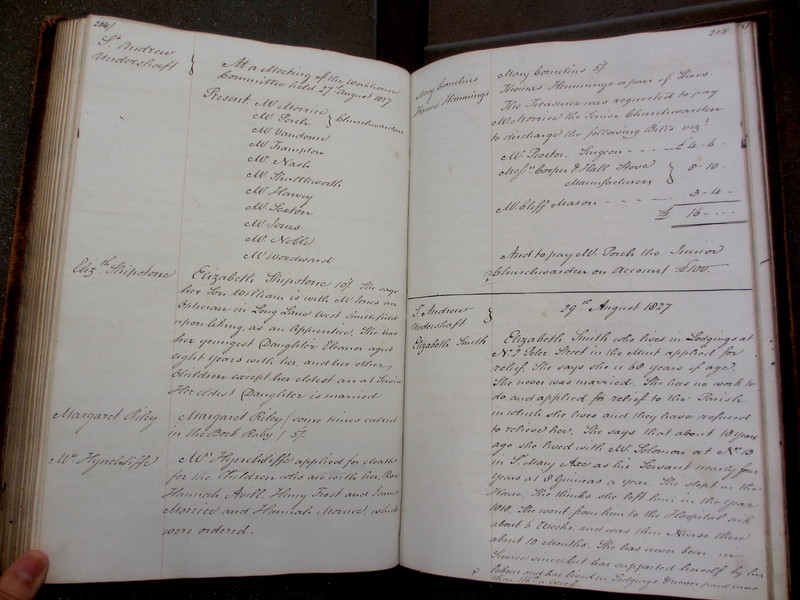 204
St. Andrew
Undershaft
At a Meeting of the Workhouse
Committee held 27th August 1827
Present. Mr Morrice
Mr Porch
Churchwardens
Mr Vaudome
Mr Frampton
Mr Nash
Mr Shuttleworth
Mr Harvey
Mr Sexton
Mr Jones
Mr Noble
Mr Woodward
Elizth. Shipstone
Elizabeth Shipstone 10/. She says
her Son William is with Mr Jones an
Optician in Long Lane West Smithfield
upon liking, as an Apprentice. She has
her youngest Daughter Eleanor aged
eight Years with her, and her other
Children except her eldest are at Service
Her eldest Daughter is married
Margaret Riley
Margaret Riley (some times called
in the Book Raby) 5/.
Mrs Hynchliffe
Mrs Hynchliffe applied for cloaths
for the Children who are with her, Rose
Hannah Avill, Henry Frost and James
Morrice and Hannah Morrice, which
were ordered.
205
Mary Cornelius
Thomas Hemmings
Mary Cornelius 5/.
Thomas Hemmings a pair of Shoes.
The Treasurer was requested to pay
Mr Morrice the Senior Churchwarden
to discharge the following Bills vizt
Mr Proctor. Surgeon - - - £4. 6.
Messrs Cooper & Hall Stove
Manufacturers
8. 10.
Mr Cliff Mason - - - - 3. 4.
£ 16 - - -
And to pay Mr Porch the Junior
Churchwarden on Account £100.
St. Andrew
Undershaft
29th August 1827
Elizabeth Smith
Elizabeth Smith who lives in Lodgings at
No 2 Peter Street in the Mint applied for
relief. She says she is 60 years of age.
She never was married. She has no work to
do and applied for relief to the Parish
in which she lives and they have refused
to relieve her. She says that about 10 years
ago she lived with Mr Solomon at No 10
in St. Mary Axe as his Servant nearly four
years at 8 Guineas a year. She slept in the
House. She thinks she left him in the year
1818. She went from him to the Hospital sick
about 6 Weeks and was then Nurse there
about 10 Months. She has never been in
Service since but has supported herself by her
labour and has lived in Lodgings & never paid more
than a week